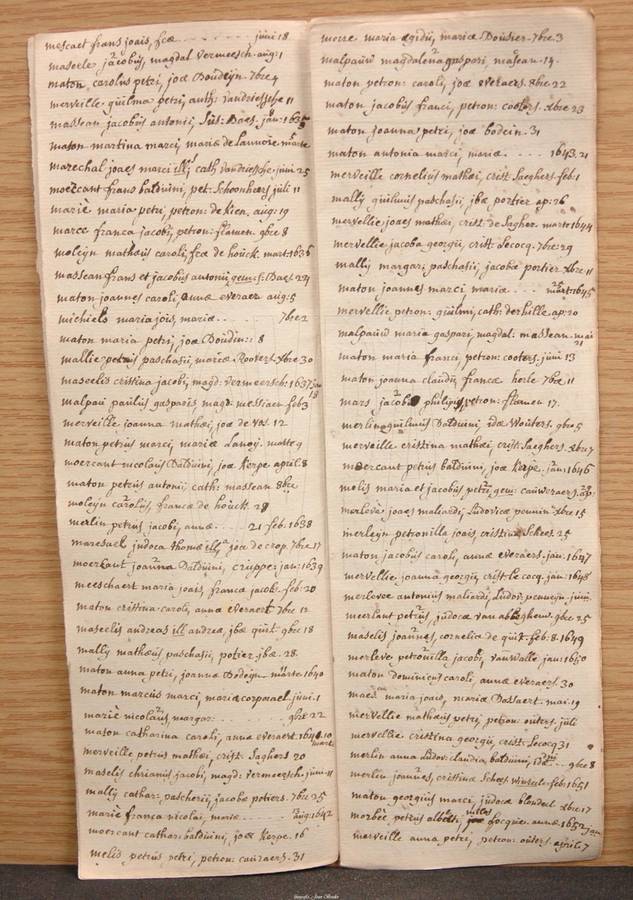 mescaet frans joais, fcæ - - - - - juni 18
maserle jacobus, magdal vermeesch. aug: 1
maton, carolus petri, joæ Boudeijn. 7bre 4
merveille guilma petri, anth: vandriessche 11
massean jacobus antonii, Jan: 1635
mason martina marci, mariæ de Lannoire marte
marechal joaes marci ill; cath vandriessche. juni 25
moercant frans balduini, pet: Schoonheers juli 11
marie maria petri, petron: de kien, aug: 19
marce franca jacobi, petron: flamen. 9bre 8
moleyn mathæus caroli, fcæ de houck. mart: 1636
massean frans et jacobus antonii gem: f: Baet 24
maton joannes caroli, annæ everaer aug: 5
michiels maria jois, mariæ - - - 7bre 2
maton maria petri, joæ Boudin: 8
mallie petrus paschasii, mariæ Rooferf. xbre 30
maseelis cristina jacobi, magd: vermeersch: 1637 jan 18
malpau paulus gasparis, mag: messiaen feb 3
merveille joanna mathæi, joæ de vos. 12
maton petrus marci, mariæ Lanoij. matte 9
moercant nicolaus Balduini, joæ kerpe april. 8
maton petrus antonii cath: massean 8bre
moleyn carolus, francæ de houck. 28
merlin petrus jacobi, annæ . . . . 21 feb. 1638
maresael judoca thomæ ill, joæ de crop. 7bre 17
moerkant joanna Balduini, crieppe: jan: 1639
meeschaert maria joais, francæ jacobs. feb: 20
maton cristina caroli, anna everaert 7bre 12
maseelis andreas ill andreæ, jbæ quit: 9bre 18
mally mathæus paschasii, potier. jbæ. 28
maton anna petri, joanna Bodeyn marte 1640
maton marcus marci, mariæ corporael juni. 1
marie nicolaus, margar: - - - 9bre 22
maton catharina caroli, anna everaert. 1641. 10 mart
merveille petrus mathæi, crist: Saghers 20
maselis chrianus jacobi, magd: vermeersch. juni 11
mally cathar: pascherii, jacobæ potiers. 7bre 25
marie franca nicolai, marie - - - - aug: 1642
moercant cathar: balduini, joæ kerpe. 16
melis petrus petri, petron: cauraers. 31
morre maria egidii, mariæ Dousier. 7bre 3
malpauw magdalena gaspari, measean. 14.
maton petron: caroli, joæ everaers. 8bre 22
maton jacobus franci, petron: cooters. xbre 23
maton joanna petri, joæ bodein. 31
maton antonia marci, mariæ . . . . 1643. 21
merveille cornelius mathæi, crist: Saeghers. feb: 1
mally guilmus paschasii, jbæ portier ap: 26
mervellie joaes mathæi, crist: de Saghers. marte 1644
mervellie jacoba georgii, crist: Lecocq. 7bre: 29
mally margar: paschasii, jacobæ portier. xbre. 11
maton joannes marci mariæ . . . . mart: 1645
mervellie petron: guilmi, cath: derhille. ap: 20
malpauw maria gaspari, magdal: massean. mai 21
maton maria franci, petron: cooters. juni 13
maton joanna claudii, francæ herle 7bre 11
mars jacoba philippi, petron: flamen 17.
merlin guilmus Balduini, idæ Wouters. 9bre 5
merveille cristina mathæi, crist: Saeghers. xbre 7
moercant petrus balduini, joæ kerpe. jan: 1646
molis maria et jacobus petri, gem: cauweraers. ap.
merleve joaes maliardi, Ludovicæ pennin. xbre 15
merleyn petronilla joais, cristinæ Schees. 25
maton jacobus caroli, annæ everaers. jan: 1647
mervellie joanna georgii, crist: le cocq. jan: 1648
merlevee antonius maliardi, Ludov: penneijn. juni.
meerlant petrus, judocæ van abbeghem. 9bre 25
maselis joannes, cornelia de quit. feb: 8. 1649
merleve petronilla jacobi, vanwalle, jan: 1650
maton Dominicus caroli, annæ everaers. 30
maes maria joais, mariæ Dassaert. mai. 19
mervellie mathæus petri, petron: outers. juli
mervellie cristina georgii, crist: Lecocq 31
merlin anna Ludov: claudia, balduini, idæ - - 9bre 8
merlin joannes, cristinæ Schees feb: 1651
maton georgius marci, judocæ blondeel xbre. 17
morbee petrus alberti, focquer. annæ 1652 jan
merveille anna petri, petron: outers. april. 7